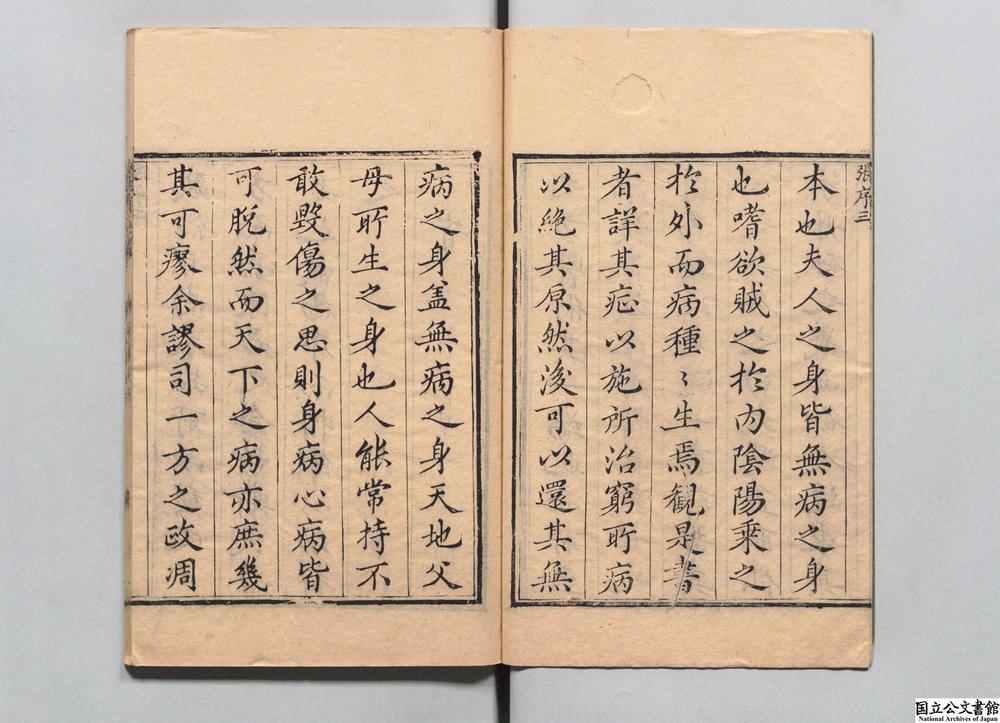 張序三
本也夫人之身皆無病之身
也嗜欲賊之扵内陰陽乗之
扵外而病種〻生焉観是書
者詳其疪以施所治窮所病
以絶其原然後可以還其無
病之身盖無病之身天地父
母所生之身也人能常持不
敢毀傷之思則身病心病皆
可脫然而天下之病亦庶幾
其可瘳余謬司一方之政凋
国立公文書館
National Archives of Japan